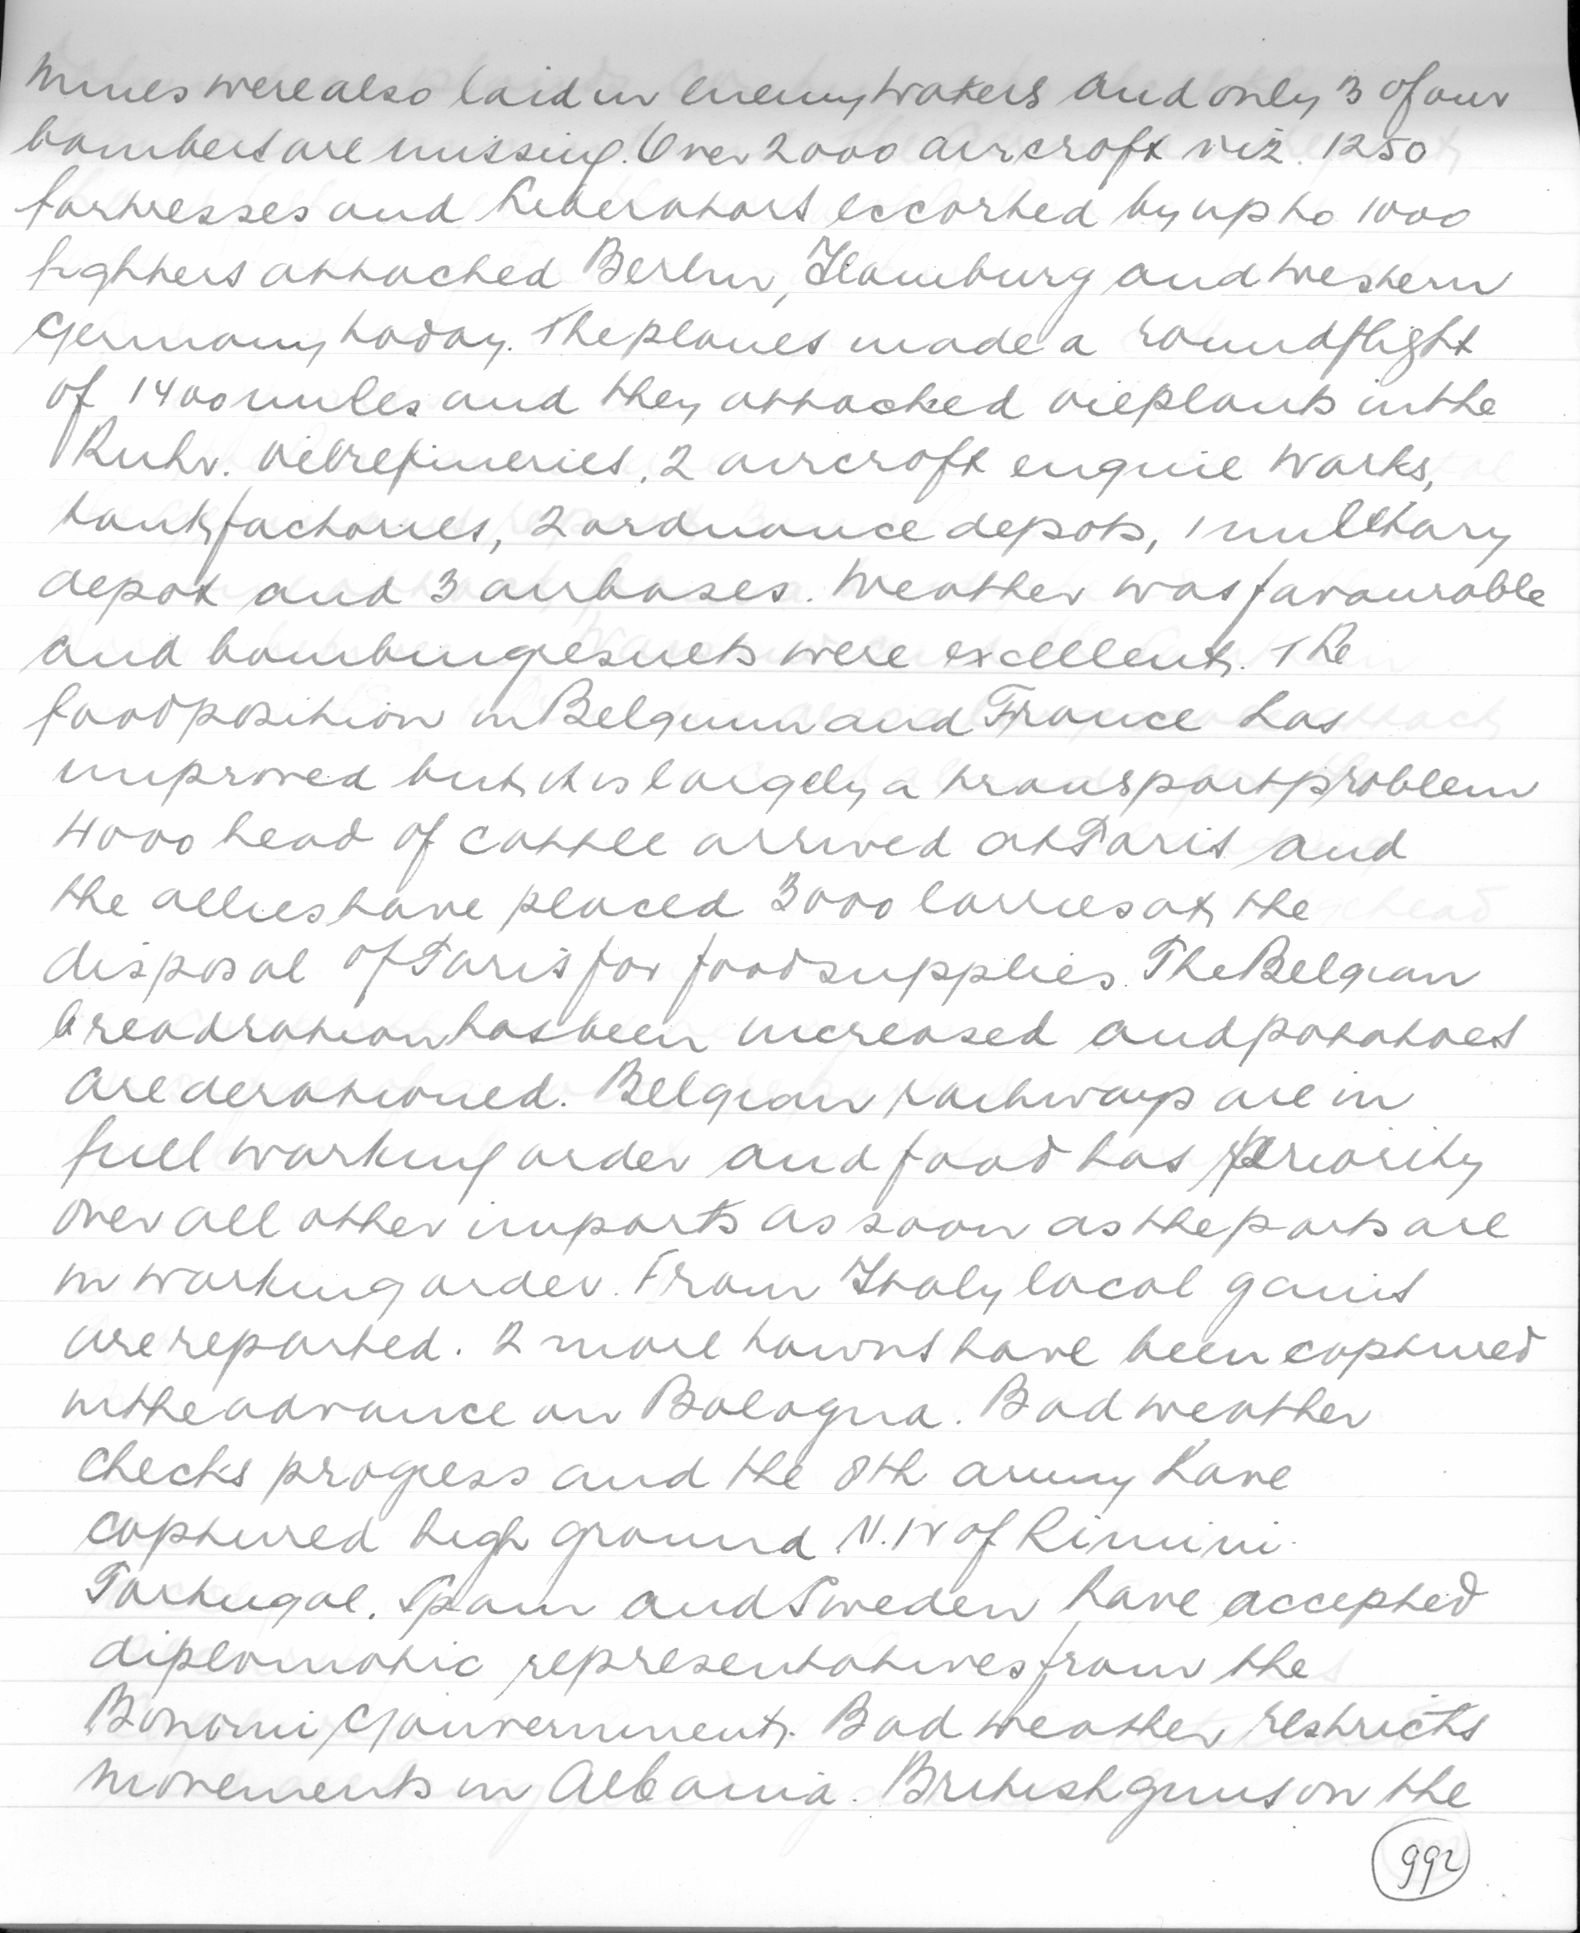 Mines were also laid in enemy waters and only 3 of our
bombers are missing. Over 2000 aircraft viz. 1250
fortresses and Liberators eccorted by up to 1000
fighters attacked Berlin, Hamburg and Western
Germany today. The planes made a roundflight
of 1400 miles and they attacked oilplants in the
Ruhr. Oilrefineries, 2 aircraft engine works,
tankfactories, 2 ordnance depots, 1 military
depot and 3 airbases. Weather was favourable
and bombingresults were excellent. The
foodposition in Belgium and France has
improved but it is largely a transportproblem
4000 head of cattle arrived at Paris and
the allies have placed 3000 lorries at the
disposal of Paris for foodsupplies. The Belgian
breadration has been increased and potatoes
are derationed. Belgian railways are in
full working order and food has priority
over all other imports as soon as the ports are
in working order. From Italy local gains
are reported. 2 more towns have been captured
in the advance on Bologna. Bad weather
checks progress and the 8th army have
captured high ground N.W of Rimini.
Portugal. Spain and Sweden have accepted
diplomatic representatives from the
Bonomi Gouvernment. Bad weather restricts
movements in Albania. British guns on the
992